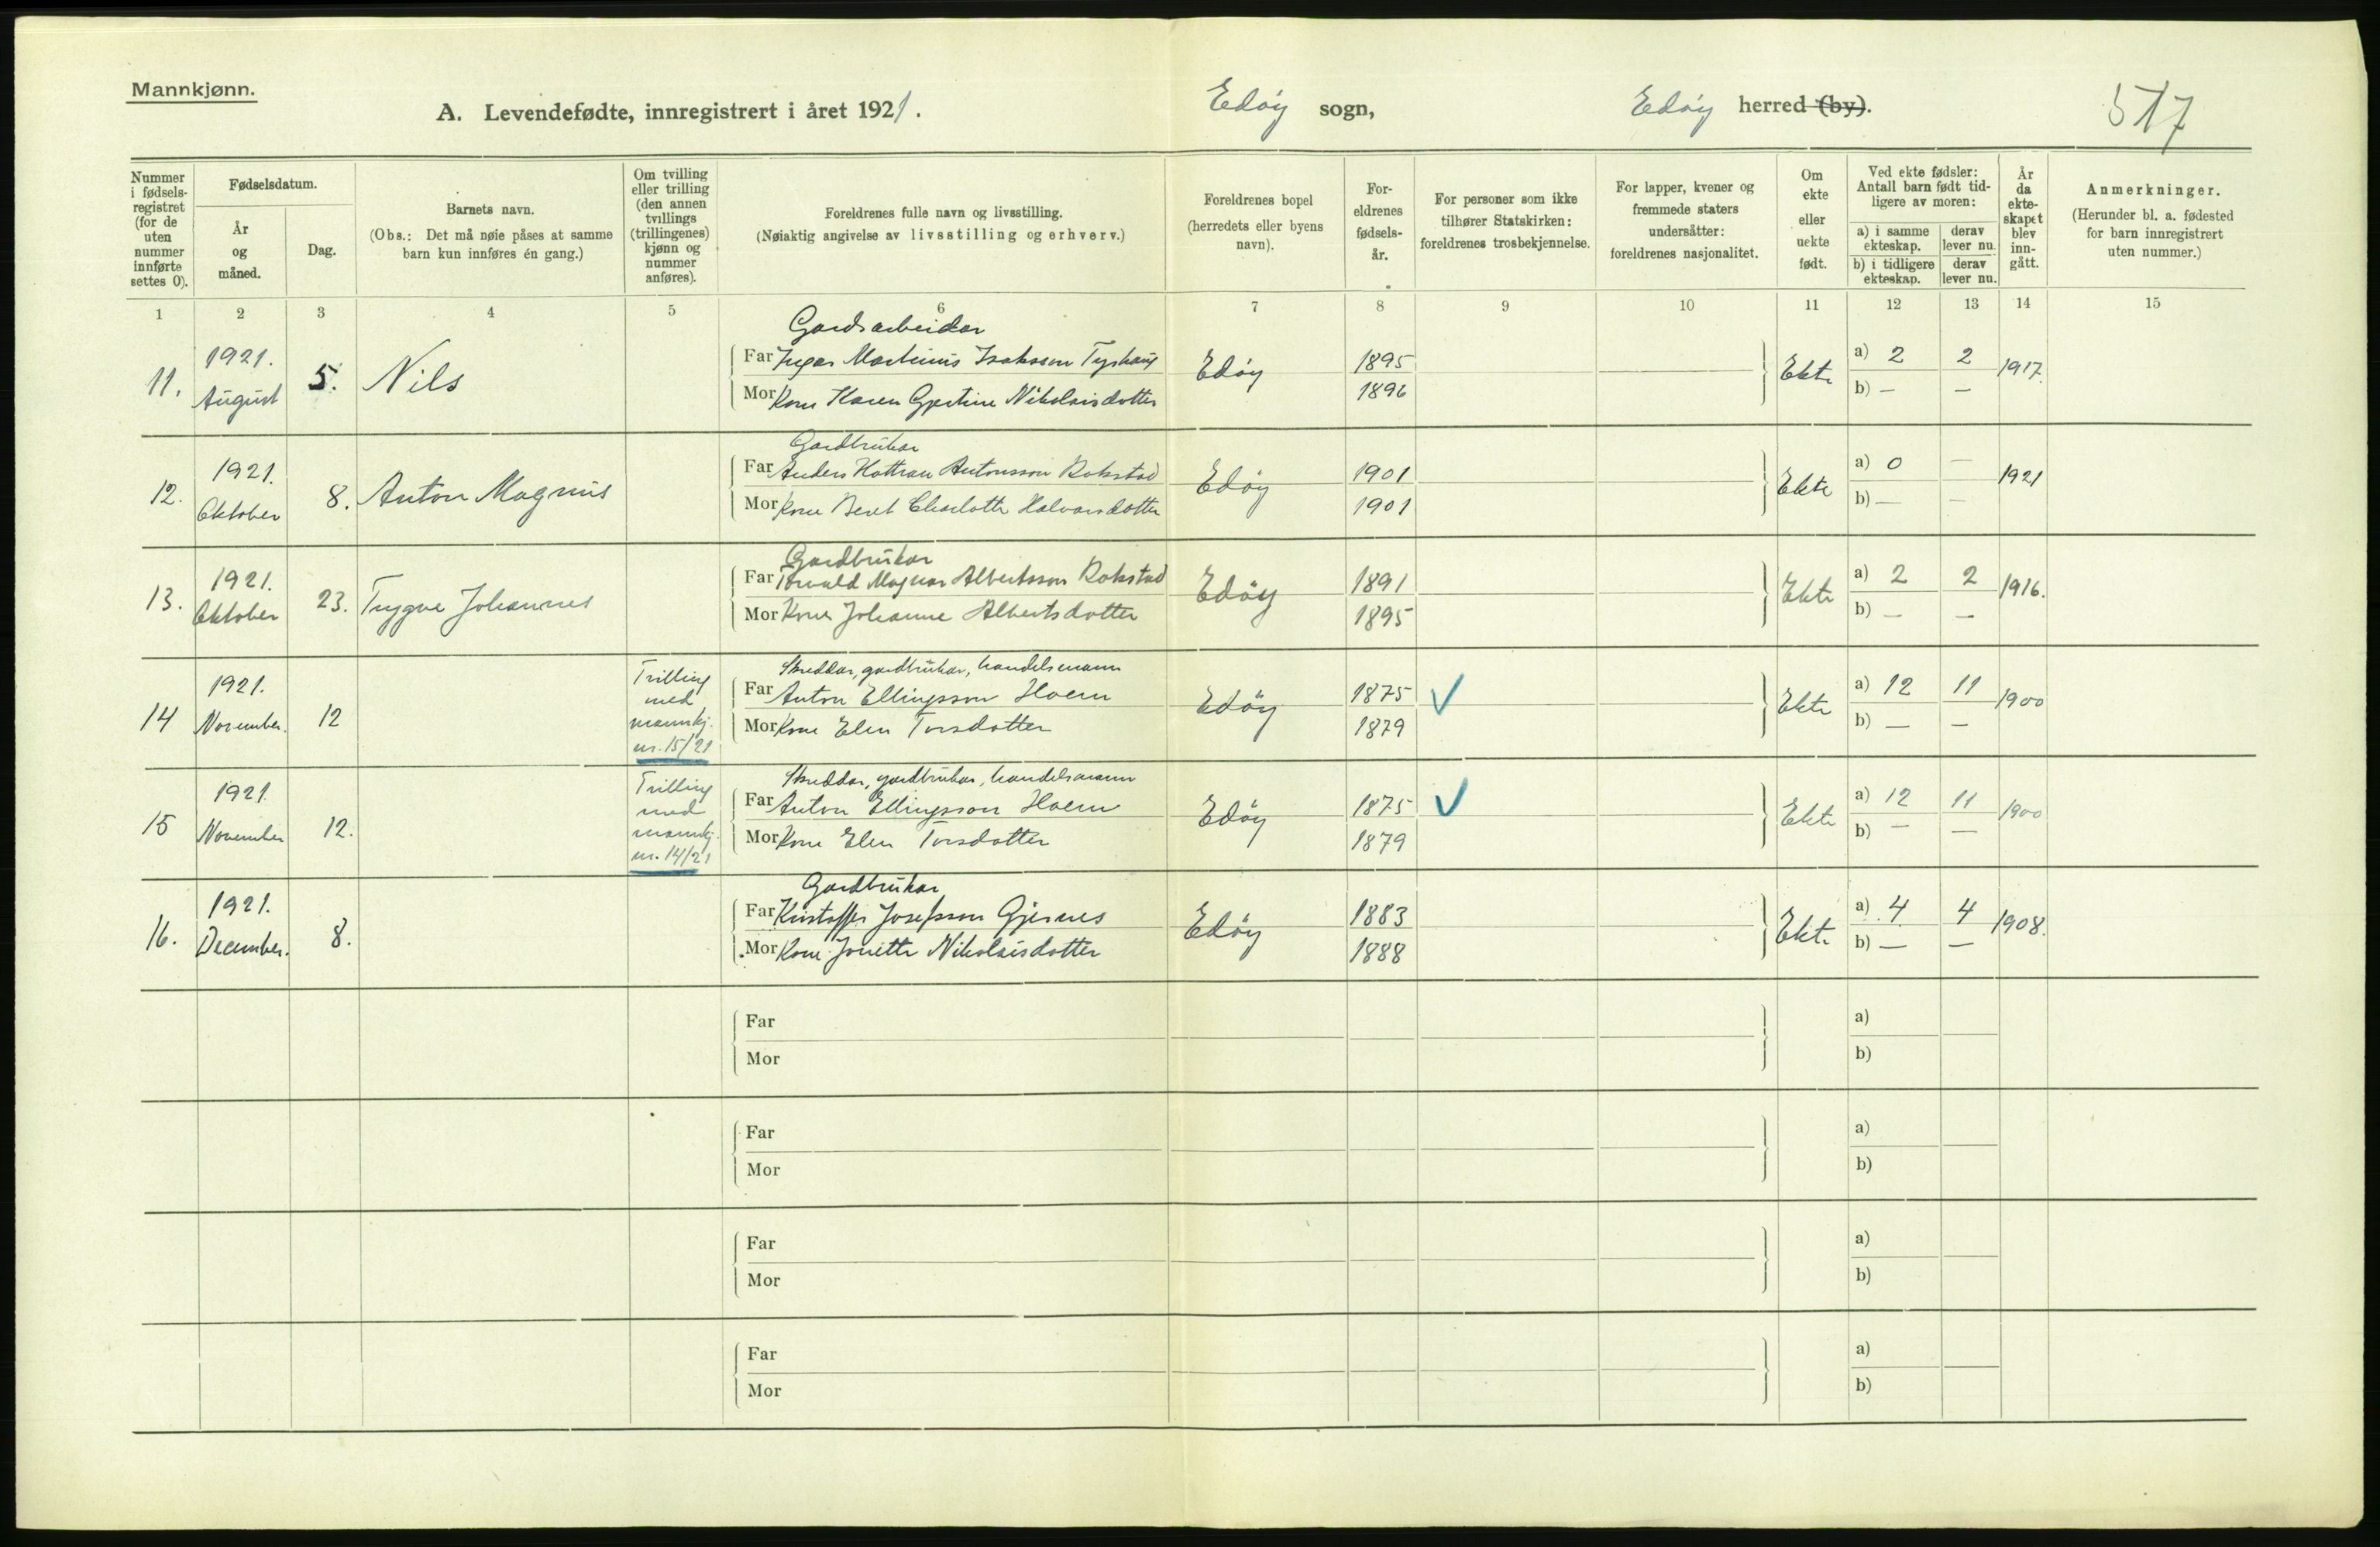 Mannkjønn.
A. Levendefødte, innregistrert i året 1921.
Edøy sogn,
Edøy herred (by).
517
Nummer i fødsels-registret (for de uten nummer innførte settes 0).
Fødselsdatum.
År og måned.
Dag.
Barnets navn.
(Obs.: Det må nøie påses at samme barn kun innføres én gang.)
Om tvilling eller trilling (den annen tvillings (trillingenes) kjønn og nummer anføres).
Foreldrenes fulle navn og livsstilling.
(Nøiaktig angivelse av livsstilling og erhverv.)
Foreldrenes bopel (herredets eller byens navn).
For-eldrenes fødsels-år.
For personer som ikke tilhører Statskirken: foreldrenes trosbekjennelse.
For lapper, kvener og fremmede staters undersåtter: foreldrenes nasjonalitet.
Om ekte eller uekte født.
Ved ekte fødsler: Antall barn født tid-ligere av moren:
a) i samme ekteskap.
derav lever nu.
b) i tidligere ekteskap.
derav lever nu.
År da ekte-skapet blev inn-gått.
Anmerkninger.
(Herunder bl. a. fødested for barn innregistrert uten nummer.)
1 2 3 4 5 6 7 8 9 10 11 12 13 14 15
Gardsarbeidar
11. 1921. August 5. Nils
Far Martinus Isaksson Edøy 1895 Ekte a) 2 2 1917.
Mor Kone Karen Gjertine Nikolaisdotter 1896 b) — —
Gardbrukar
12. 1921. Oktober 8. Anton Magnus
Far Anders Antonsson Rokstad Edøy 1901 Ekte a) 0 — 1921
Mor Kone Beret Charlotte Halvorsdotter 1901 b) — —
Gardbrukar
13. 1921. Oktober 23. Trygve Johannes
Far Torvald Magnar Albertsson Rokstad Edøy 1891 Ekte a) 2 2 1916.
Mor Kone Johanne Albertsdotter 1895 b) — —
Skreddar, gardbrukar, handelsmann
14 1921. November. 12 Trilling med mannkj. nr. 15/21
Far Anton Ellingsson Hoem Edøy 1875 Ekte a) 12 11 1900
Mor Kone Elen Torsdotter 1879 b) — —
Skreddar, gardbrukar, handelsmann
15 1921 November 12. Trilling med mannkj. nr. 14/21
Far Anton Ellingsson Hoem Edøy 1875 Ekte a) 12 11 1900
Mor Kone Elen Torsdotter 1879 b) — —
Gardbrukar
16. 1921. December. 8.
Far Kristoffer Josefsson Gjernes Edøy 1883 Ekte a) 4 4 1908.
Mor Kone Jonette Nikolaisdotter 1888 b) — —
Far a)
Mor b)
Far a)
Mor b)
Far a)
Mor b)
Far a)
Mor b)